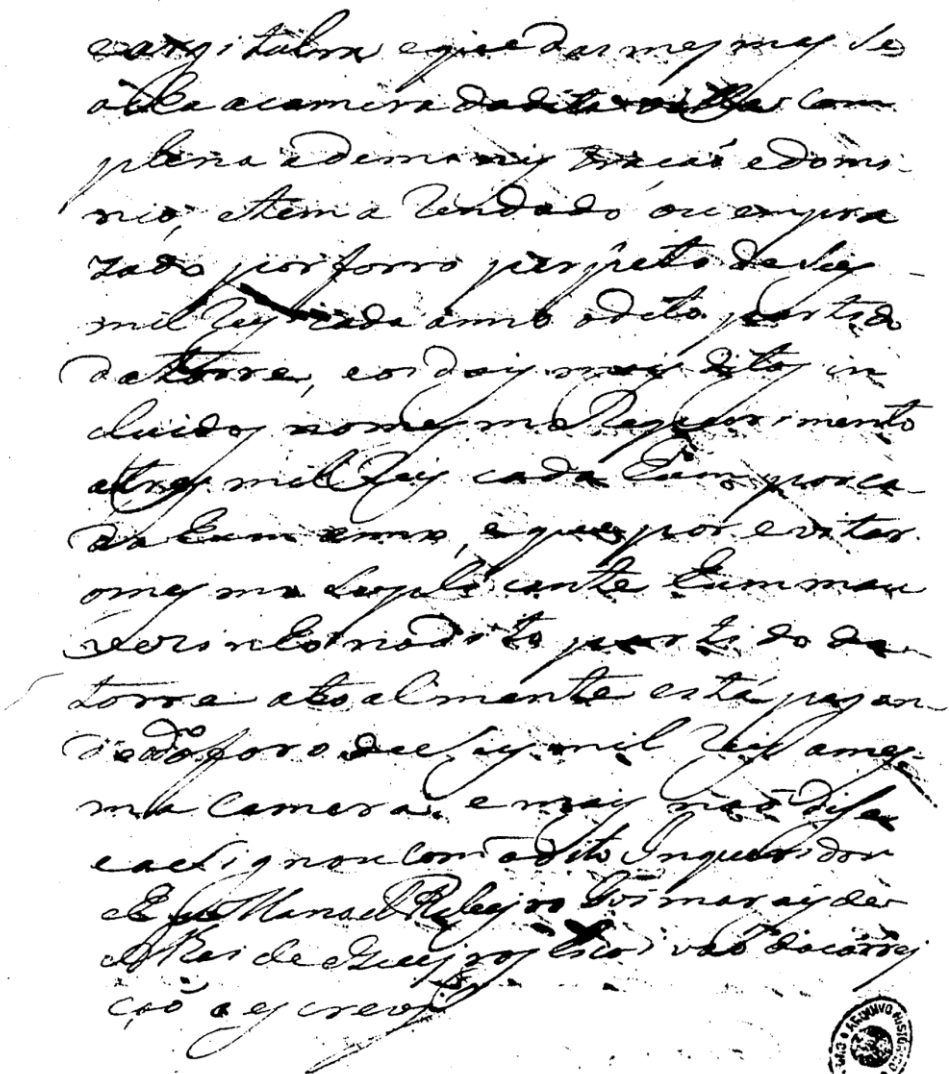 e que das mesmas se
acha a camera da dita villa com
plena e domi
nio, e tem a Rendado ou empra
zado por forro perpeto de seis
mil Reis cada anno o dito partido
da torre, e os dois mais ditos in
cluidos no mesmo Requerimento
a tres mil Reis cada hum por ca
da hum anno, e que por evitar
o mesmo Suplicante hum mau
vezinho no dito partido da
torre atoalmente está pagan
do foro de seis mil Reis a mes
ma Camera, e mais não dise
e asignou com o dito Inqueridor
e Eu Manoel Ribeyro Guimarais de
Escrivão da correi
ção o escrevy
ARQUIVO HISTORICO